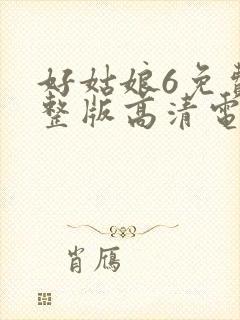 好姑娘6免費
整版高清電
肖鴈